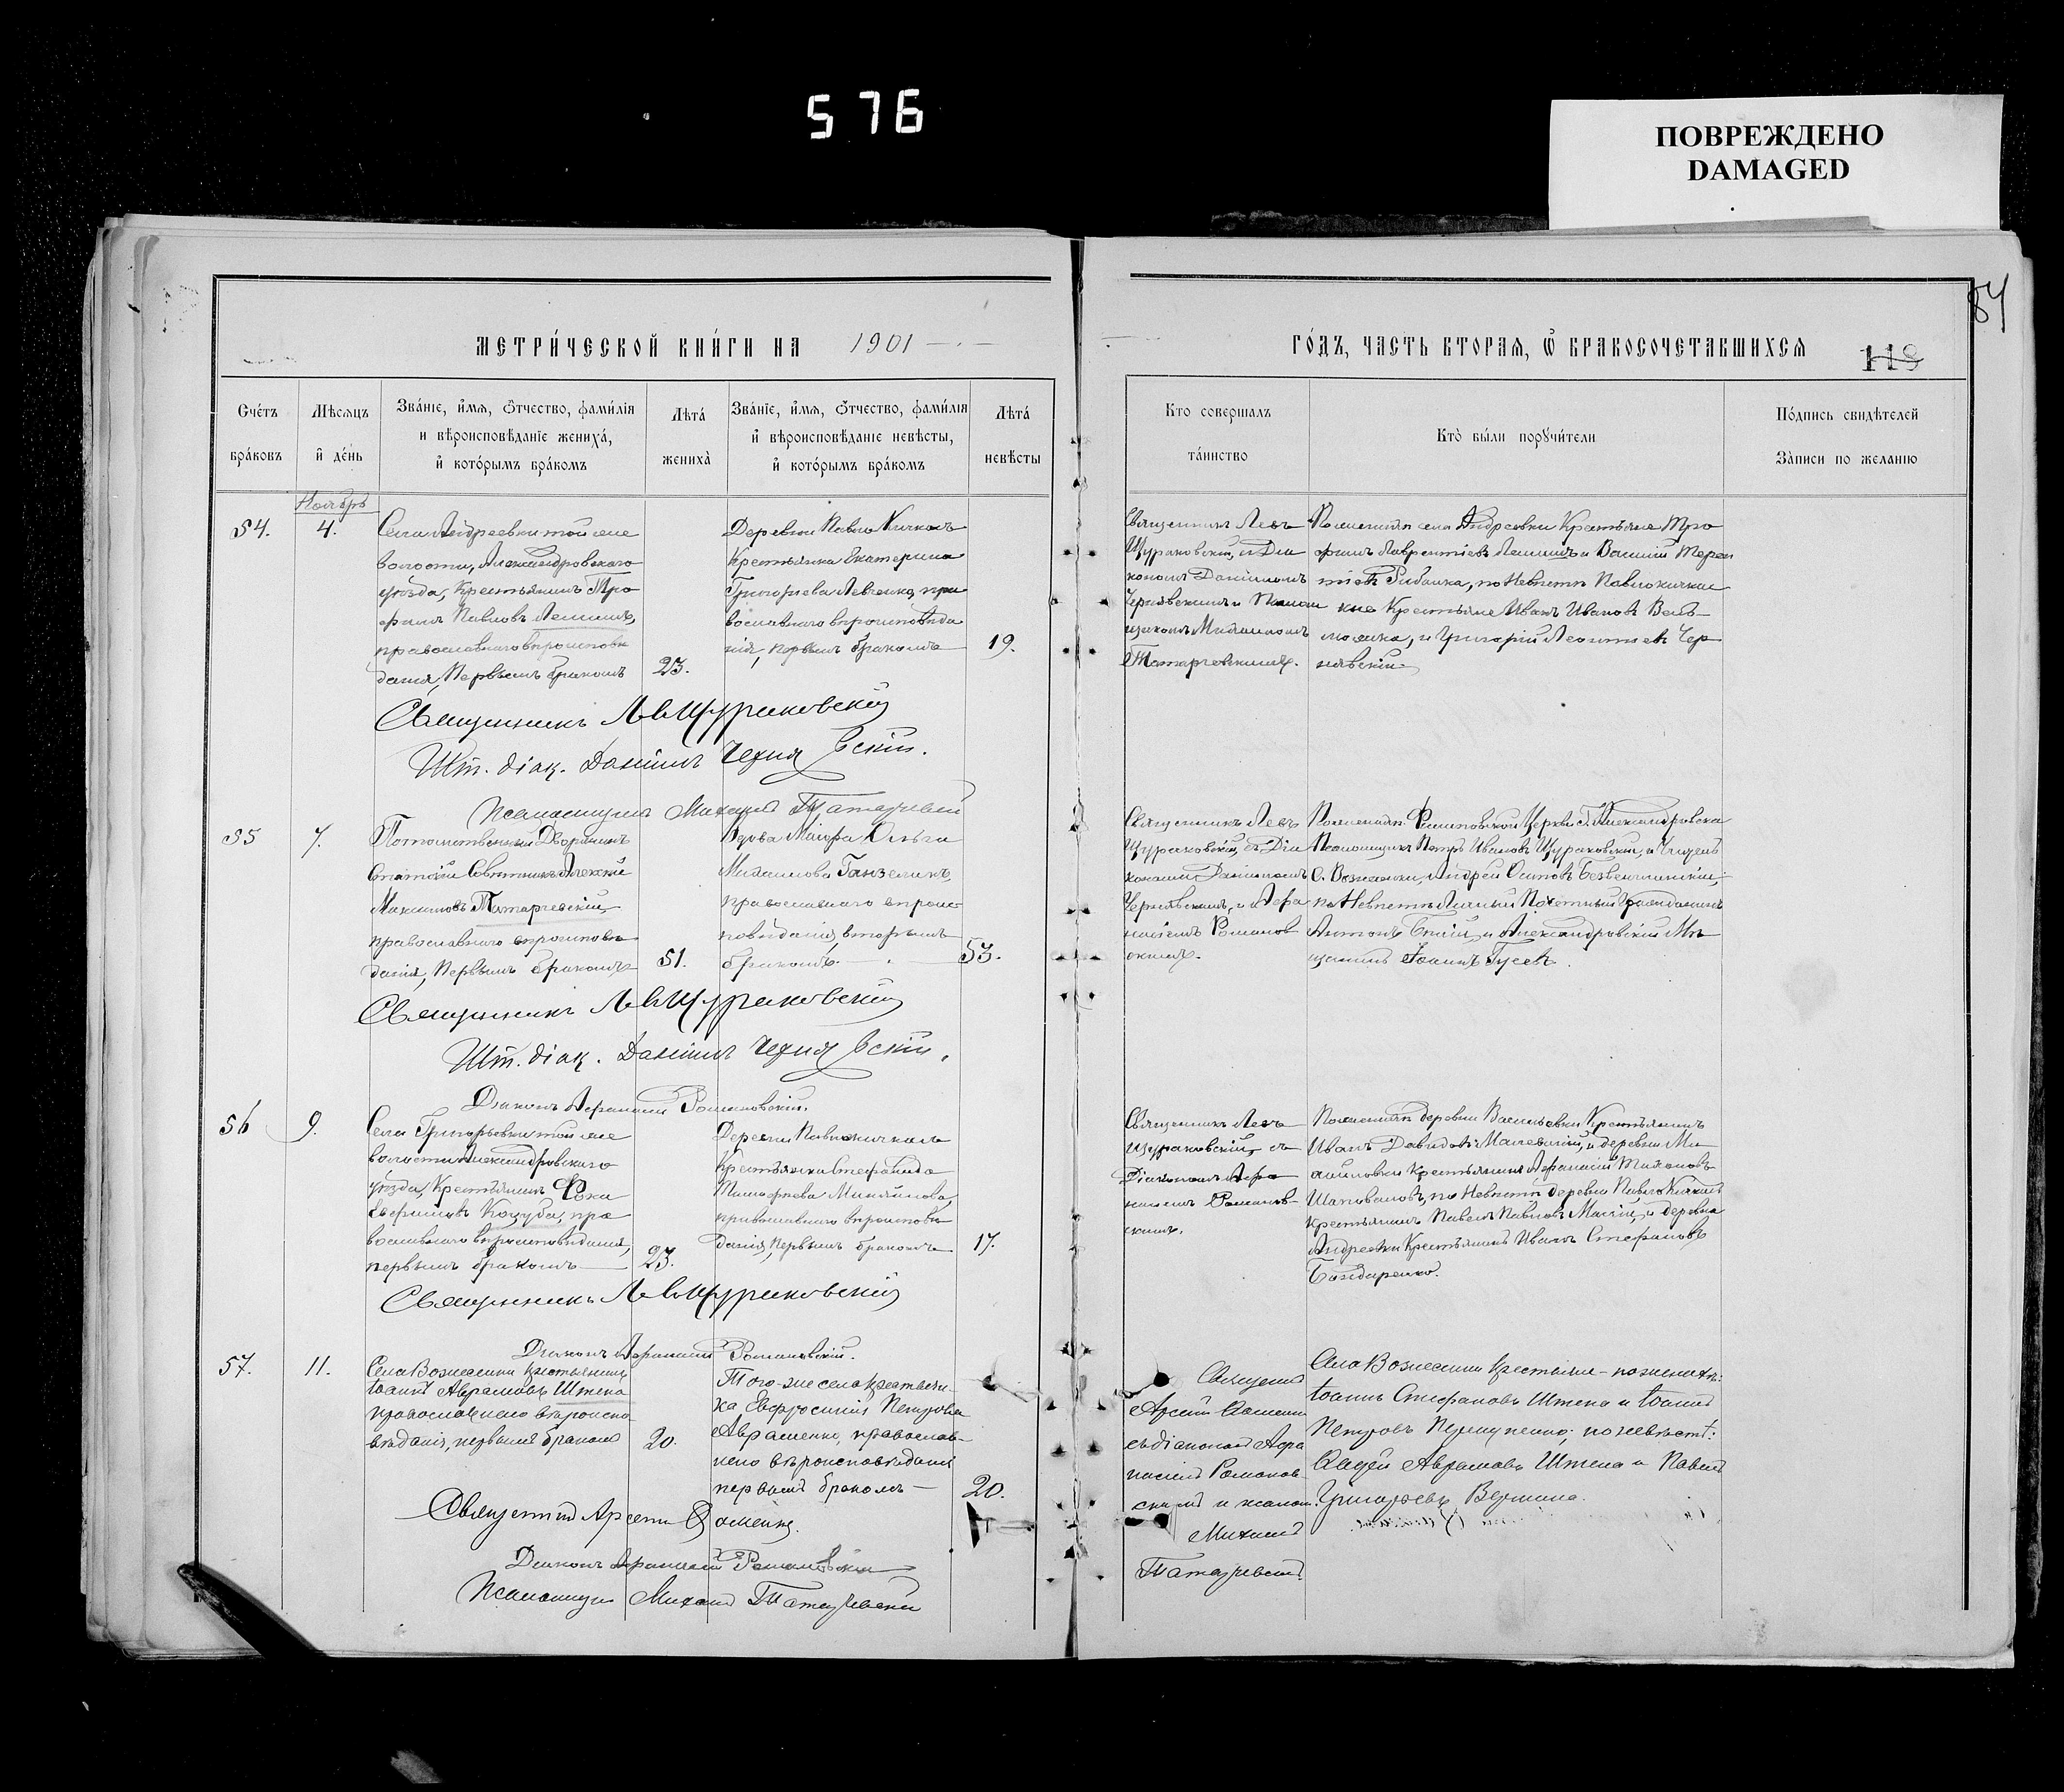 576
ПОВРЕЖДЕНО
DAMAGED
84
МЕТРИ́ЧЕСКОЙ КНИ́ГИ НА 1901
ГО́ДЪ, ЧАСТЬ ВТОРАЯ, Ѿ БРАКОСОЧЕТАВШИХСЯ
119
Сче́тъ бра́ковъ
Мѣсяцъ и де́нь
Зва́ніе, и́мя, о́тчество, фами́лія
и вѣроисповѣ́даніе жениха́,
и кото́рымъ бра́комъ
Лѣта́ жениха̀
Зва́ніе, и́мя, о́тчество, фами́лія
и вѣроисповѣ́даніе невѣ́сты,
и кото́рымъ бра́комъ
Лѣта́ невѣ́сты
Кто соверша́лъ та́инство
Кто̀ бы́ли поручи́тели
По́дпись свидѣ́телей
За̀писи по жела́нію
Ноябрь
54.
4.
Села Андреевки той же
волости, Александровскаго
уѣзда, Крестьянинъ Тро
фимъ Павловъ Лемишъ,
православнаго вѣроисповѣ
данія, Первымъ бракомъ
23.
Деревни Павло Кичкасъ
Крестьянка Екатерина
Григорьева Левченко, пра
вославнаго вѣроисповѣда
нія, первымъ бракомъ
19.
Священникъ Левъ
Щураковскій, съ Діа
кономъ Даніиломъ
Чернявскимъ и Псалом
щикомъ Михаиломъ
Татарчевскимъ.
По женихѣ села Андреевки Крестьяне Тро
фимъ Лаврентіевъ Лемишъ и Василій Терен
тіевъ Рибалка, по Невѣстѣ Павлокичкас
кіе Крестьяне Иванъ Ивановъ
и Григорій Леонтіевъ Чер
нявскій.
Священникъ Л Щураковскій
Шт. діак. Даніилъ Чернявскій.
Псаломщикъ Михаилъ Татарчевскій
55
7.
Потомственный Дворянинъ
Статскій Совѣтникъ Алексій
Максимовъ Татарчевскій,
православнаго вѣроисповѣ
данія, Первымъ бракомъ
51.
Вдова Маіора Ольга
Михаилова Ганзелинъ,
православнаго вѣроис-
повѣданія, вторымъ
бракомъ.
53.
Священникъ Левъ
Щураковскій, съ Діа
кономъ Даніиломъ
Чернявскимъ, и Афа
насіемъ Романов
скимъ.
По женихѣ Церкви г. Александровска
Псаломщикъ Петръ Ивановъ Щураковскій, и
с. Вознесенки, Андрей Осиповъ
по Невѣстѣ Личный Почетный Гражданинъ
Антонъ и Александровскій Мѣ
щанинъ Іоаннъ Гусевъ.
Священникъ Л Щураковскій
Шт. діак. Даніилъ Чернявскій.
Діаконъ Афанасій Романовскій.
56
9.
Села Григорьевки той же
волости Александровскаго
уѣзда, Крестьянинъ Фока
Евфимовъ Коцуба, пра
вославнаго вѣроисповѣданія,
первымъ бракомъ
23.
Деревни Павлокичкасъ
Крестьянка Стефанида
Тимофеева Миняйлова,
православнаго вѣроисповѣ
данія, первымъ бракомъ
17.
Священникъ Левъ
Щураковскій, съ
Діакономъ Афа
насіемъ Романов-
скимъ.
По женихѣ деревни Васильевки Крестьянинъ
Иванъ Давидовъ и деревни Ми
хайловки крестьянинъ Афанасій Тихоновъ
Шаповаловъ, по Невѣстѣ деревни Павло Кичкасъ
крестьянинъ Павелъ Павловъ и деревни
Андреевки Крестьянинъ Иванъ Стефановъ
Бондаренко.
Священникъ Л Щураковскій
Діаконъ Афанасій Романовскій.
57.
11.
Села Вознесенки крестьянинъ
Іоаннъ Аврамовъ Штепа
православнаго вѣроиспо
вѣданія, первымъ бракомъ
20.
Того-же села крестьян-
ка Евфросинія Петрова
Авраменко, православ-
наго вѣроисповѣданія
первымъ бракомъ
20.
Священникъ
Арсеній
съ діакономъ Афа
насіемъ Романов-
скимъ и псалом.
Михаилъ
Татарчевскій.
Села Вознесенки крестьяне - по женихѣ:
Іоаннъ Стефановъ Штепа и Іоаннъ
Петровъ по невѣстѣ:
Авдѣй Аврамовъ Штепа и Павелъ
Григорьевъ
Священникъ Арсеній
Діаконъ Афанасій Романовскій
Псаломщикъ Михаилъ Татарчевскій